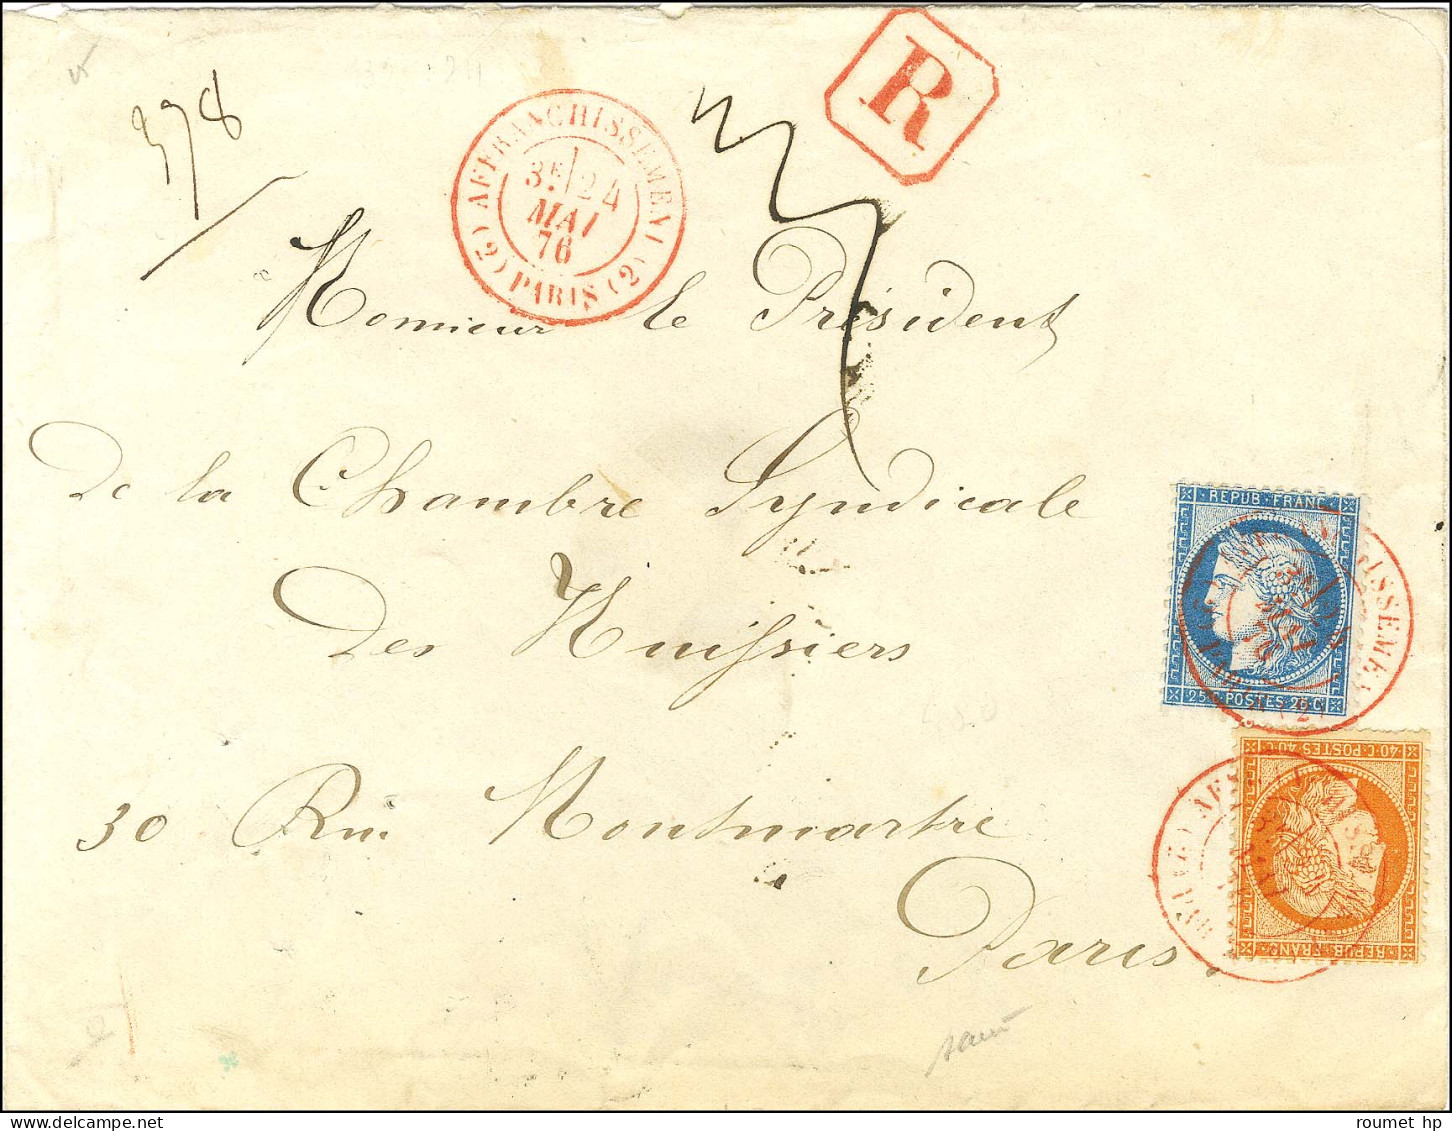 R
378
(2) AFFRANCHISSEMENT (2)
3E 24
MAI
76
PARIS
Monsieur le Président
De la Chambre Syndicale
Des Huissiers
30 Rue Montmartre
Paris.
REPUB·FRANC
25 C·POSTES 25 C
40 C·POSTES 40 C
REPUB·FRANC
roumet hp